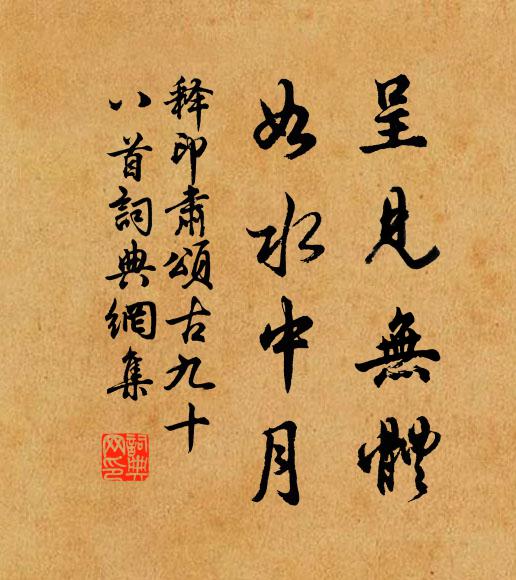 呈見無體
如水中月
释印肅頌古九十
八首詞典網集
詞典网印